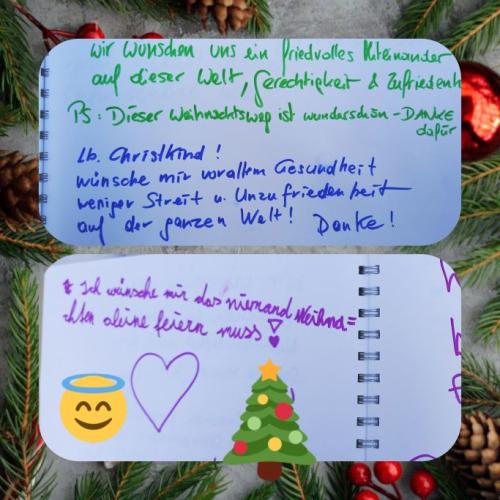 wir wünschen uns ein friedvolles Miteinander
auf dieser Welt, Gerechtigkeit & Zufriedenh
PS: Dieser Weihnachtsweg ist wunderschön - DANKE
dafür
Lb. Christkind!
wünsche mir vorallem Gesundheit
weniger Streit u. Unzufriedenheit
auf der ganzen Welt! Danke!
* Ich wünsche mir das niemand Weihna=
chten aleine feiern muss!